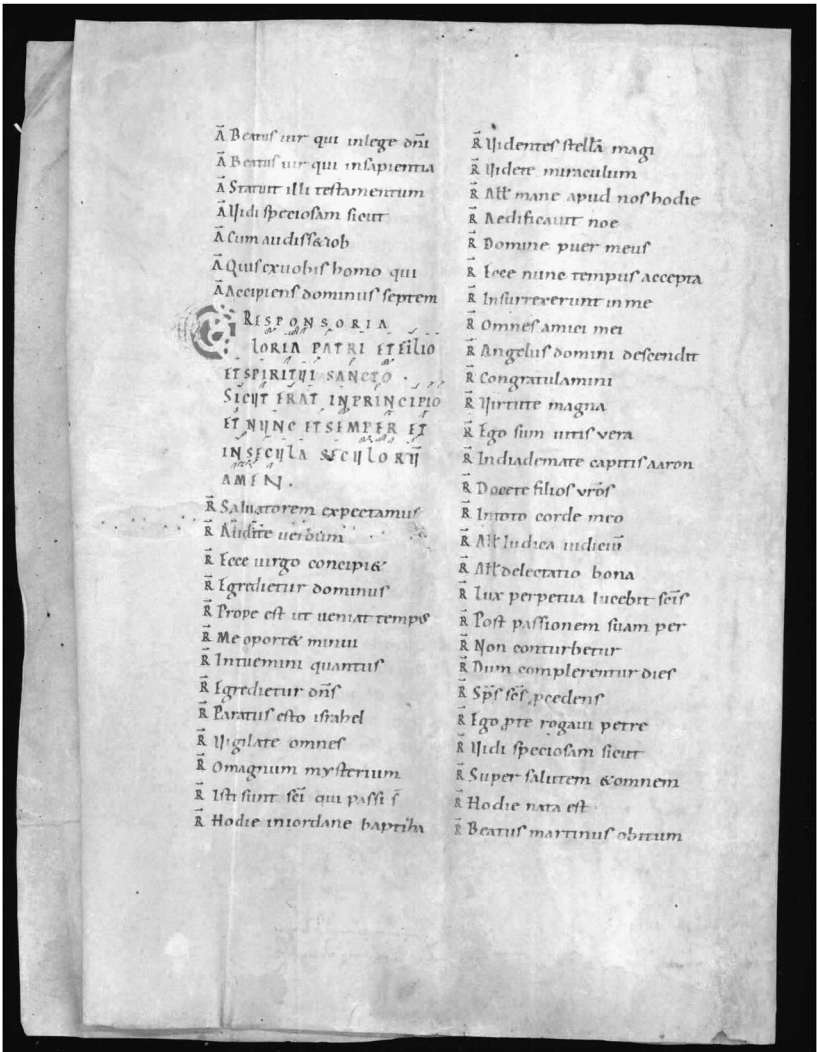 Ā Beatus uir qui inlege dn̄i
Ā Beatus uir qui insapientia
Ā Statuit illi testamentum
Ā Uidi speciosam sicut
Ā Cum audiss& iob
Ā Quis exuobis homo qui
Ā Accipiens dominus septem
RESPONSORIA
GLORIA PATRI ET FILIO
ET SPIRITUI SANCTO .
SICUT ERAT INPRINCIPIO
ET NUNC ET SEMPER ET
IN SECULA SECULORŪ
AMEN .
R̄ Saluatorem expectamus
R̄ Audite uerbum
R̄ Ecce uirgo concipi&
R̄ Egredietur dominus
R̄ Prope est ut ueniat tempus
R̄ Me oport& minui
R̄ Intuemini quantus
R̄ Egredietur dn̄s
R̄ Paratus esto israhel
R̄ Uigilate omnes
R̄ Omagnum mysterium
R̄ Isti sunt sc̄i qui passi s̄
R̄ Hodie iniordane baptiza
R̄ Uidentes stellā magi
R̄ Uidete miraculum
R̄ All̄ mane apud nos hodie
R̄ Aedificauit noe
R̄ Domine puer meus
R̄ Ecce nunc tempus accepta
R̄ Insurrexerunt inme
R̄ Omnes amici mei
R̄ Angelus domini descendit
R̄ Congratulamini
R̄ Uirtute magna
R̄ Ego sum uitis vera
R̄ Indiademate capitis aaron
R̄ Docete filios vr̄os
R̄ Intoto corde meo
R̄ All̄ Iudica iudiciū
R̄ All̄ delectatio bona
R̄ Lux perpetua lucebit sc̄is
R̄ Post passionem suam per
R̄ Non conturbetur
R̄ Dum complerentur dies
R̄ Sp̄s sc̄s ꝓcedens
R̄ Ego ꝓte rogaui petre
R̄ Uidi speciosam sicut
R̄ Super salutem &omnem
R̄ Hodie nata est
R̄ Beatus martinus obitum